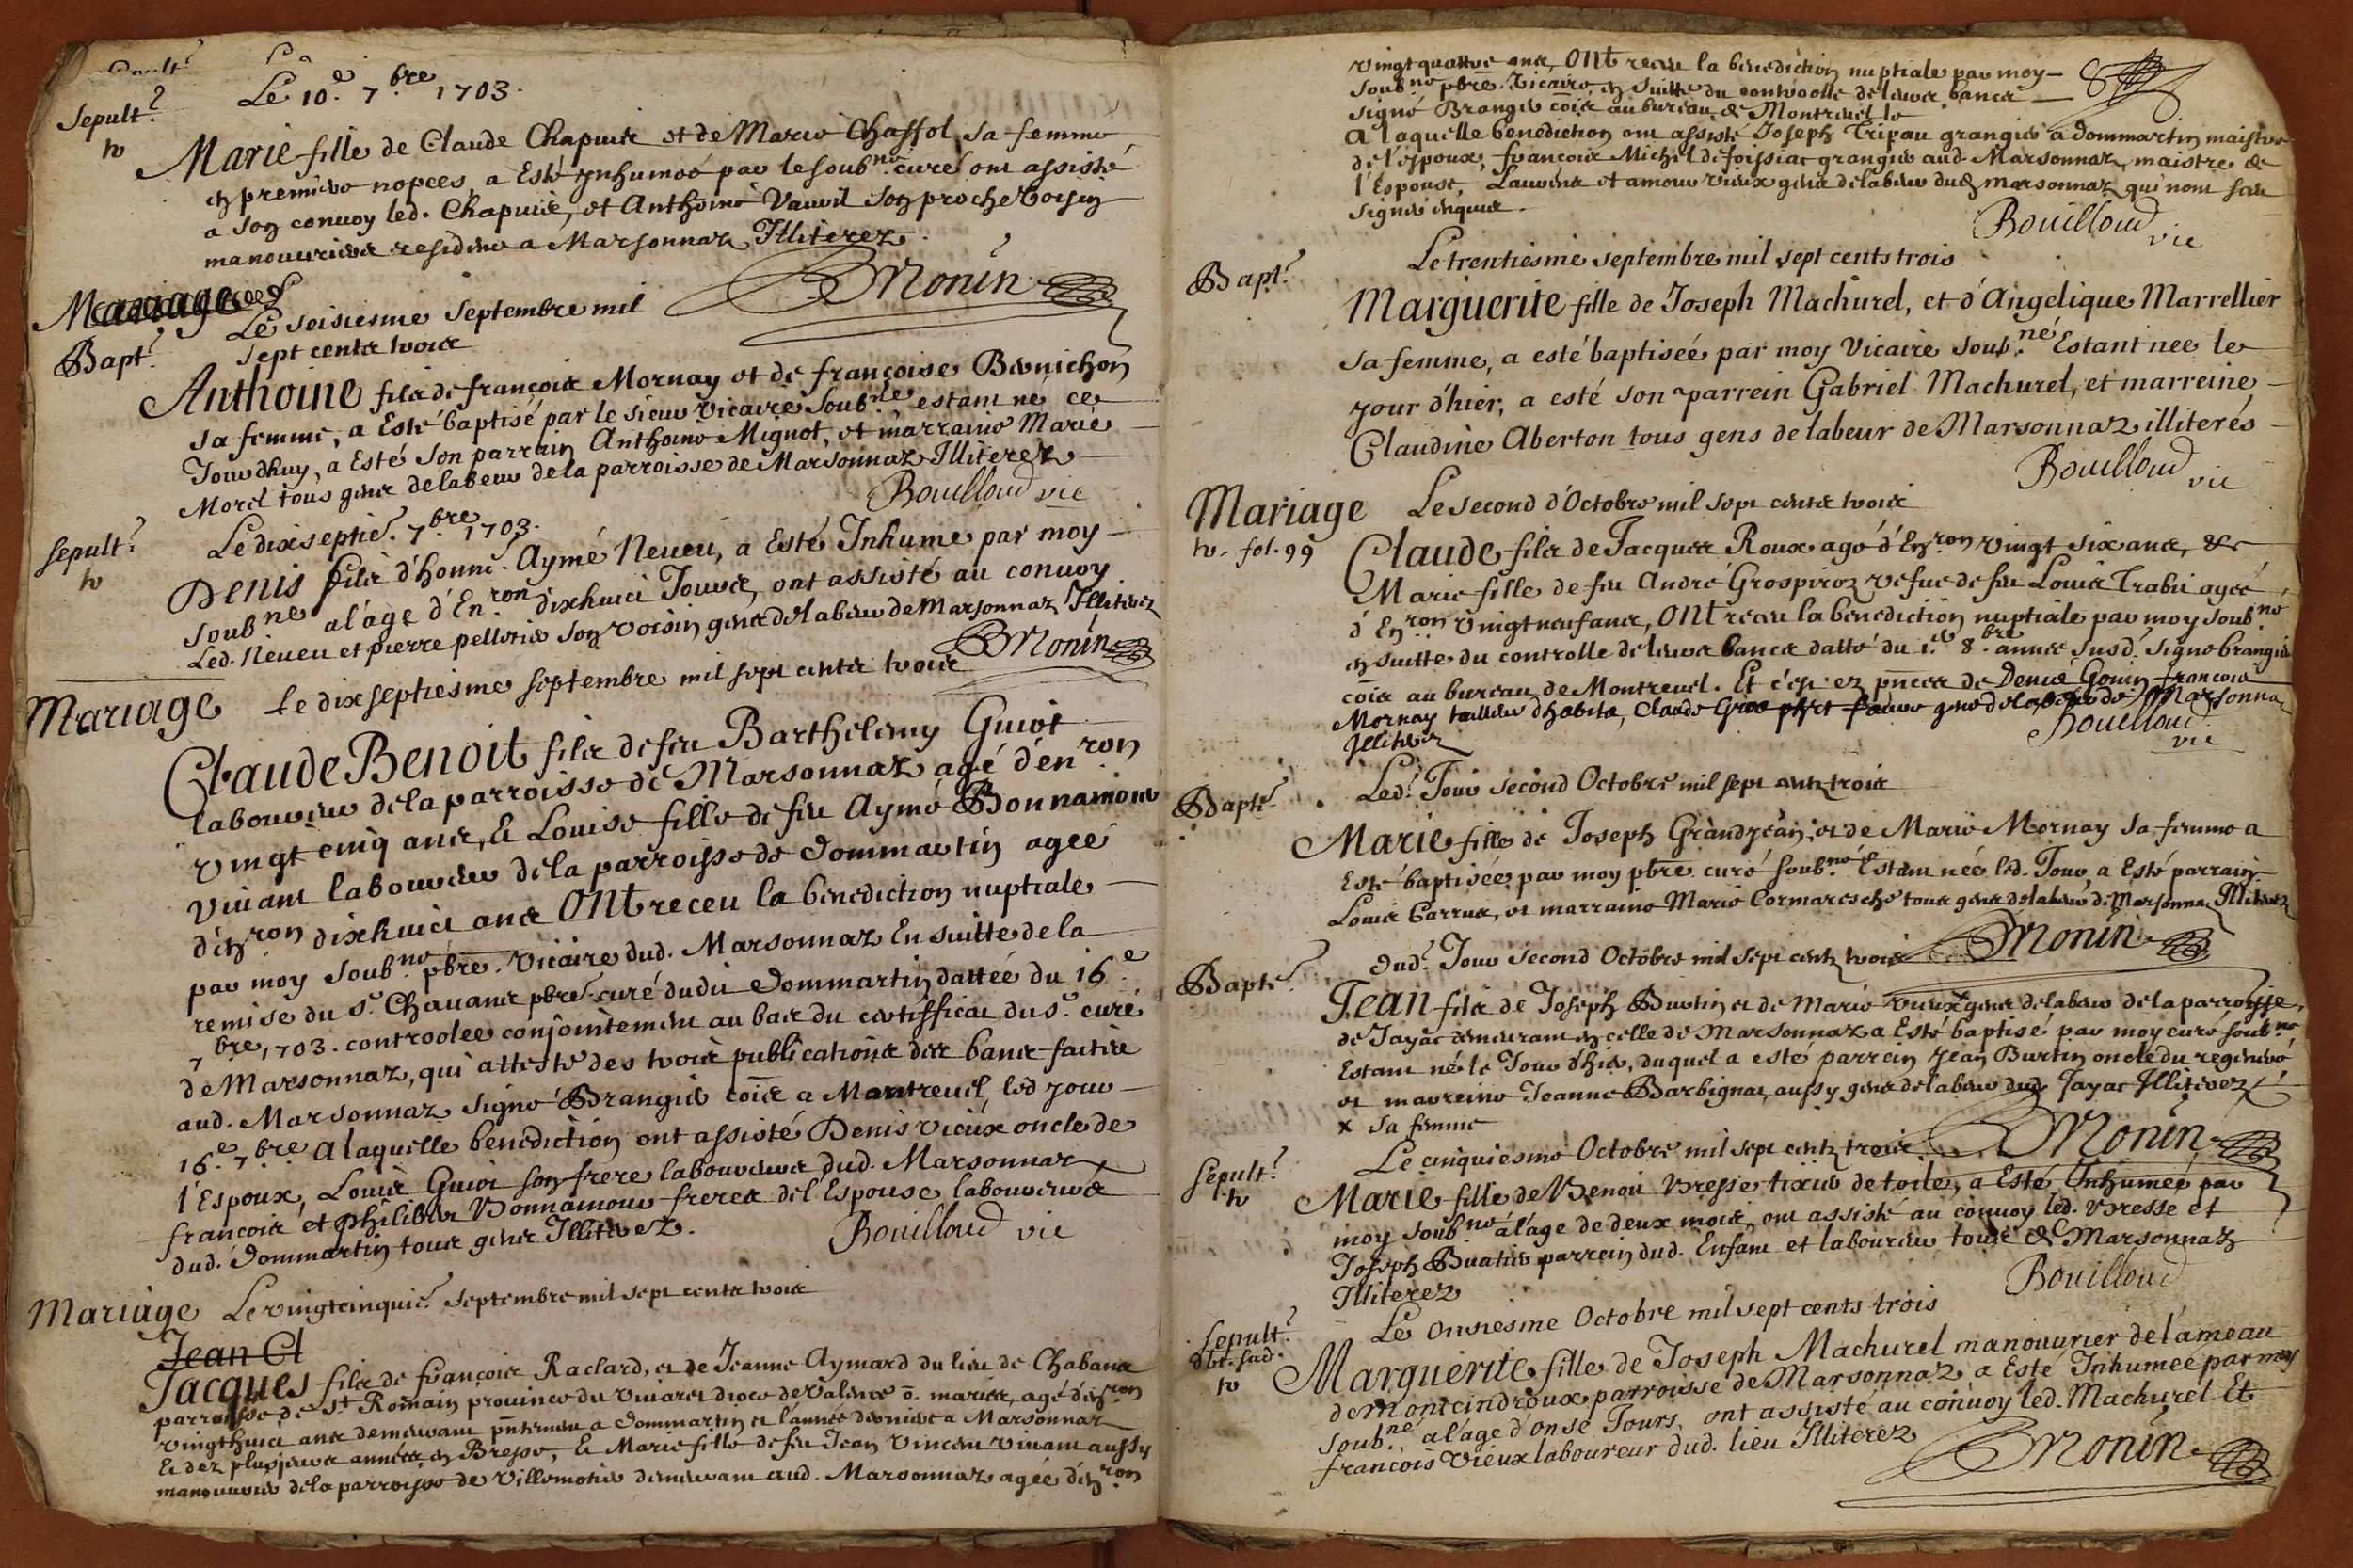 Sepult.e
Le 10.e 7.bre 1703.
Sepult.e
tv
Marie fille de Claude Chapuis et de Marie Chassol sa femme
en premiere nopces, a Esté ynhumée par le soub.né curé ont assisté
a son convoy led. Chapuis, et Anthoine Vauvil son proche voisin
manouvriers residens a Marsonnaz Illiterez.
BMonin
Mariage
Bapt.e
Le seisiesme Septembre mil
sept cents trois
Anthoine fils de françois Mornay et de françoise Benichon
sa femme, a Esté baptisé par le sieur vicaire soub.né estant né ce
Jourdhuy, a Esté son parrain Anthoine Mignot, et marraine Marie
Morel tous gens de labeur de la parroisse de Marsonnaz Illiterez
Bouilloud vic
Sepult.e
tv
Le dixseptie.e 7.bre 1703.
Denis fils d'honn.e Aymé Neveu, a Esté Inhume par moy
soub.né a l'âge d'En.ron dixhuict Jours, ont assisté au convoy
Led. Neveu et pierre pelletier son voisin gens de labeur de Marsonnaz Illiterez
BMonin
Mariage
Le dixseptiesme septembre mil sept cents trois
Claude Benoit fils de feu Barthelemy Guiot
laboureur de la parroisse de Marsonnaz agé d'en.ron
vingt cinq ans, & Louise fille de feu Aymé Bonnamour
vivant laboureur de la parroisse de Dommartin agée
d'en.ron dixhuict ans ONt receu la benediction nuptiale
par moy soub.né pbre. Vicaire dud. Marsonnaz Ensuitte de la
remise du s.r Chavanes pbre. curé dudit Dommartin dattée du 16.e
7.bre 1703. controolee conjointement au bas du certifficat du s.r curé
de Marsonnaz, qui atteste des trois publications des bans faittes
aud. Marsonnaz signé Brangier cōis a Montreuil, led jour
16.e 7.bre A laquelle benediction ont assisté Denis vieux oncle de
l'Espoux, Louis Guiot son frere laboureurs dud. Marsonnaz
francois et philibert Bonnamour freres de l'Espouse laboureurs
dud. Dommartin tous gens Illiterez.
Bouilloud vic
Mariage
Le vingtcinquie.e septembre mil sept cents trois
Jean Cl
Jacques fils de françois Raclard, et de Jeanne Aymard du lieu de Chabans
parroisse de St Romain province du vivarez dioce de Valence ō. mariés, agé d'en.ron
vingthuict ans demeurant pn̄tement a Dommartin et l'année derniere a Marsonnaz
& dez plusieurs années en Bresse, & Marie fille de feu Jean Vincent vivant aussy
manouvrier de la parroisse de Villemotier demeurant aud. Marsonnaz agée d'en.ron
vingtquattre ans, ONt receu la benediction nuptiale par moy
soub.né pbre. Vicaire en suitte du controolle de leurs bancs
signé Brangier cōis au bureau de Montreuil le
A laquelle benediction ont assisté Joseph Tripau granger a Dommartin maistre
de l'espoux, francois Michel de foissiat granger aud. Marsonnaz, maistre de
l'Espouse, Laurent et amour vieux gens de labeur dud. marsonnaz qui nont sceu
signer enquis.
Bouilloud vic
Bapt.e
Le trentiesme septembre mil sept cents trois
Marguerite fille de Joseph Machurel, et d'Angelique Marrellier
sa femme, a esté baptisée par moy Vicaire soub.né Estant nee le
your d'hier, a esté son parrein Gabriel Machurel, et marreine
Claudine Aberton tous gens de labeur de Marsonnaz illiterés
Bouilloud vic
Mariage
tv. fol. 99
Le second d'Octobre mil sept cents trois
Claude fils de Jacques Roux agé d'En.ron vingt six ans, &
Marie fille de feu André Grospiroz vefue de feu Louis Trabu agée
d'En.ron vingtneufans, ONt receu la benediction nuptiale par moy soub.né
en suitte du controlle de leurs bancs datté du 1.er 8.bre année susd. signé brangier
cōis au bureau de Montreuil. Et c'est ez pn̄ces de Denis Gonin francois
Mornay tailleur d'habits, Claude gens de labeur de Marsonnaz
Illiterez
Bouilloud vic
Bapt.e
Led. Jour second Octobre mil sept centz trois
Marie fille de Joseph Grandjean, et de Marie Mornay sa femme a
Esté baptisée par moy pbre curé soub.né Estant née led. Jour, a Esté parrain
Louis Carrua, et marraine Marie Cormaresche tous gens de labeur de Marsonnaz Illiterez
BMonin
Bapt.e
Dud. Jour second Octobre mil sept centz trois
Jean fils de Joseph Burtin et de Marie vieux gens de labeur de la parroisse
de Jayac demeurant en celle de Marsonnaz a Esté baptisé par moy curé soub.né
Estant né le Jour d'hier, duquel a esté parrein Jean Burtin oncle du regeneré
et marreine Jeanne Barbignat, aussy gens de labeur dud. Jayac Illiterez
x sa femme
BMonin
Sepult.e
tv
Le cinquiesme Octobre mil sept centz trois
Marie fille de Benoit Bresse tixier de toile, a Esté Inhumée par
moy soub.né a l'âge de deux mois, ont assisté au convoy led. Bresse et
Joseph Buatier parrein dud. Enfant et laboureur tous de Marsonnaz
Illiterez
Bouilloud
Sepult.e
tv
Le Onsiesme Octobre mil sept cents trois
Marguerite fille de Joseph Machurel manouvrier de lameau
de montcindroux parroisse de Marsonnaz a Esté Inhumée par moy
soub.né a l'âge d'onse Jours, ont assisté au convoy led. Machurel Et
françois Vieux laboureur dud. lieu Illiterez
BMonin